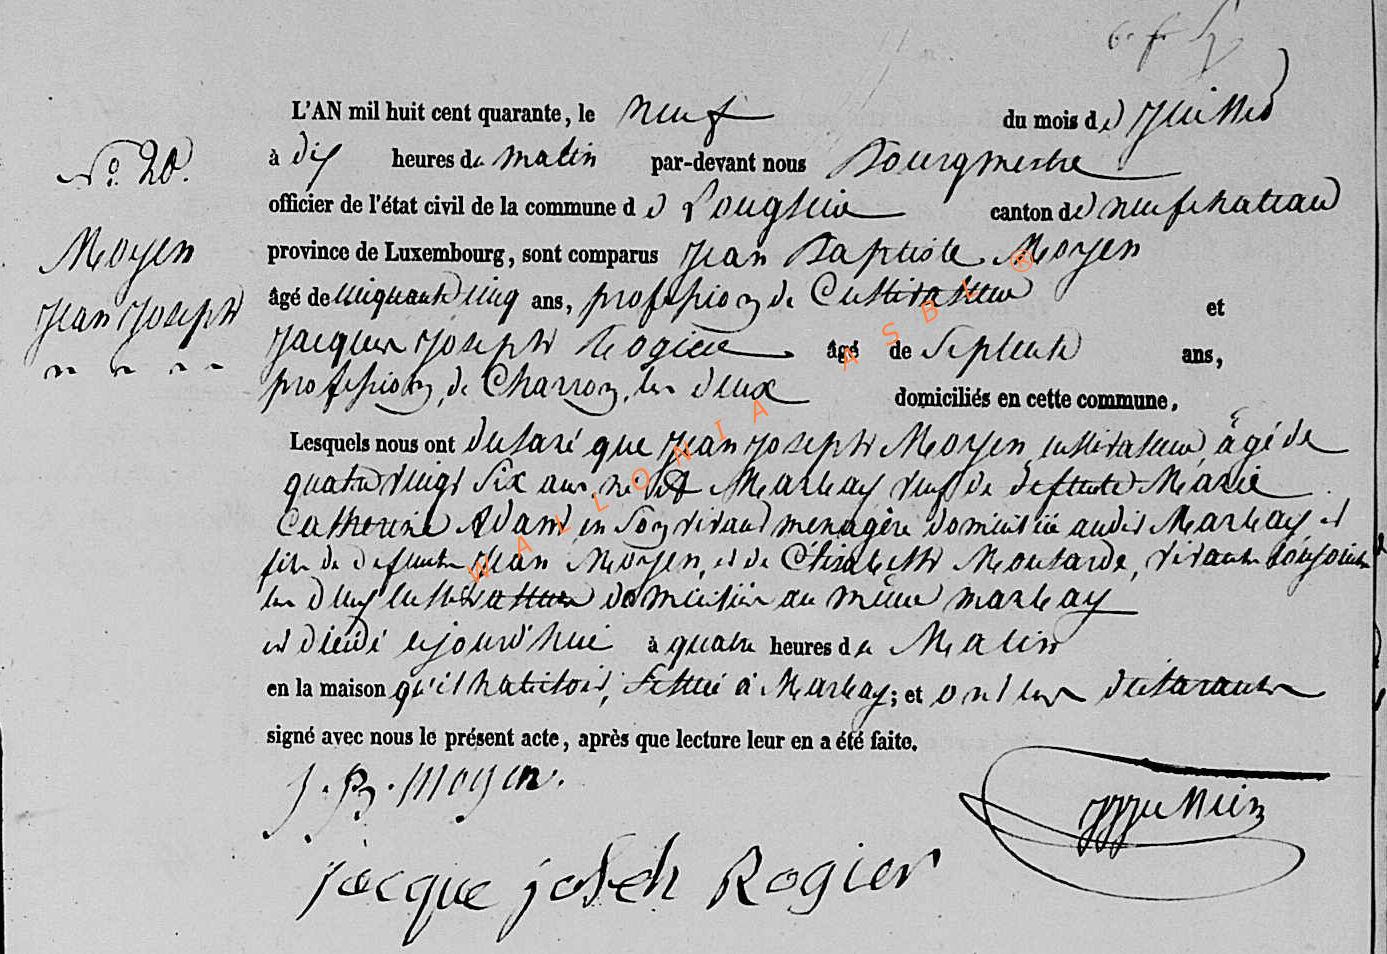 L'AN mil huit cent quarante, le neuf du mois de Juillet
N.º 20.
à dix heures du matin par-devant nous Bourgmestre
officier de l'état civil de la commune de Longlier canton de neufchateau
Moyen
province de Luxembourg, sont comparus Jean Baptiste Moyen
Jean Joseph
âgé de cinquante cinq ans, profession de Cultivateur et
Jacques Joseph Rogier âgé de Septante ans,
profession de Charron, les deux domiciliés en cette commune,
Lesquels nous ont declaré que Jean Joseph Moyen cultivateur, âgé de
quatre vingt six ans, né à Marbay veuf de defunte Marie
Catherine Adam en son vivant menagère domiciliée audit Marbay et
fils de defunts Jean Moyen, et de Elisabeth Moutarde, vivants conjoints
les deux cultivateurs domiciliés au même marbay
est décédé cejourd'hui à quatre heures du Matin
en la maison qu'il habitoit, située à Marbay; et ont les déclarants
signé avec nous le présent acte, après que lecture leur en a été faite.
J. B. Moyen.
jacque joseh Rogier
WALLONIA ASBL ®